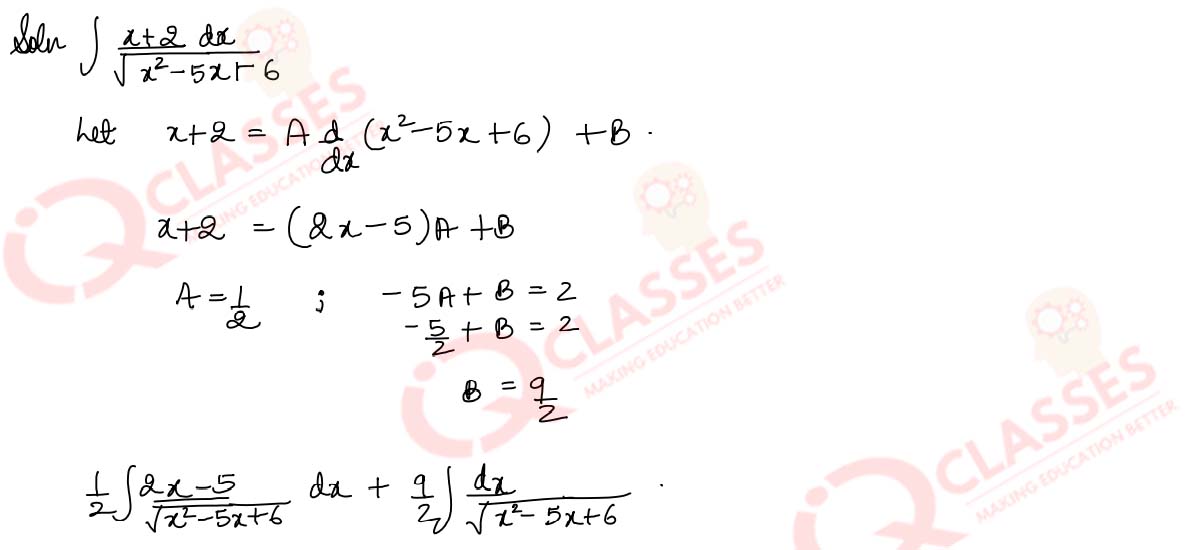 Soln ∫ x+2 dx / √x²-5x+6
Let x+2 = A d/dx (x²-5x+6) + B .
x+2 = (2x-5)A + B
A = 1/2 ; -5A + B = 2
-5/2 + B = 2
B = 9/2
1/2 ∫ 2x-5 / √x²-5x+6 dx + 9/2 ∫ dx / √x²-5x+6 .
iQ CLASSES
MAKING EDUCATION BETTER
iQ CLASSES
MAKING EDUCATION BETTER
iQ CLASSES
MAKING EDUCATION BETTER